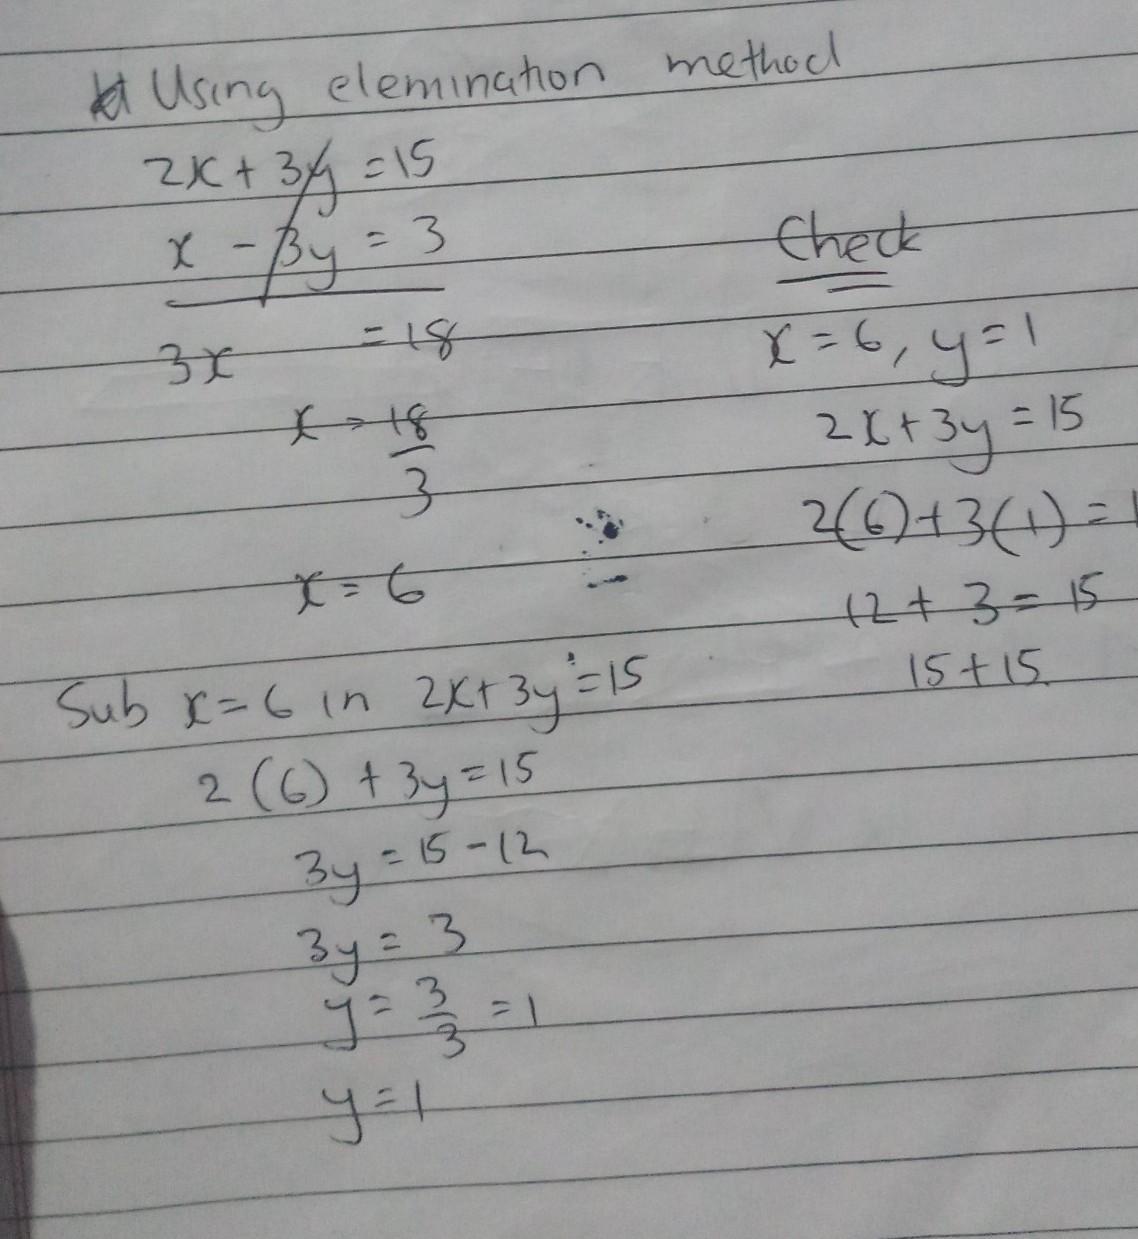 Using elemination method
2x + 3y = 15
x - 3y = 3
3x = 18
x = 18
3
x = 6
Sub x = 6 in 2x + 3y = 15
2 (6) + 3y = 15
3y = 15 - 12
3y = 3
y = 3/3 = 1
y = 1
Check
x = 6, y = 1
2x + 3y = 15
2(6) + 3(1) = 1
12 + 3 = 15
15 + 15